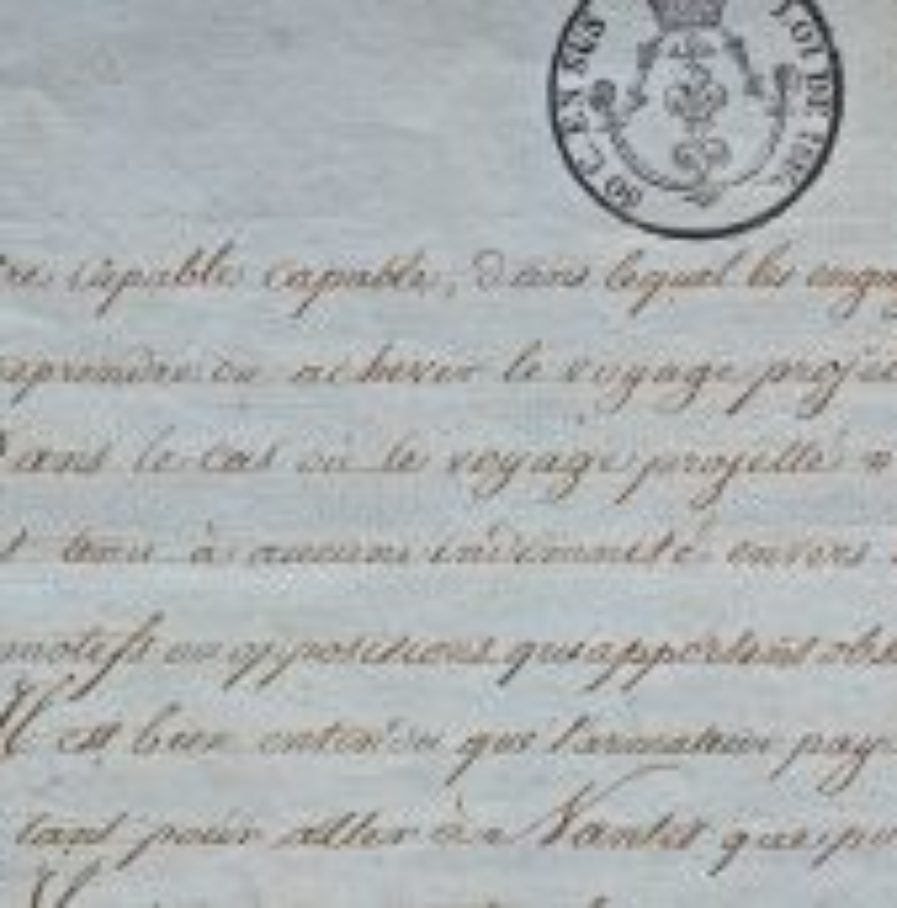 50 C. EN SUS
LOI DE
capable capable, dans lequel les engag
reprendre ou achever le voyage proje
Dans le cas où le voyage projetté n
tenu à aucune indemnité envers
motifs ou oppositions qui apportent obs
Il est bien entendu que l'armateur pay
tant pour aller à Nantes que po